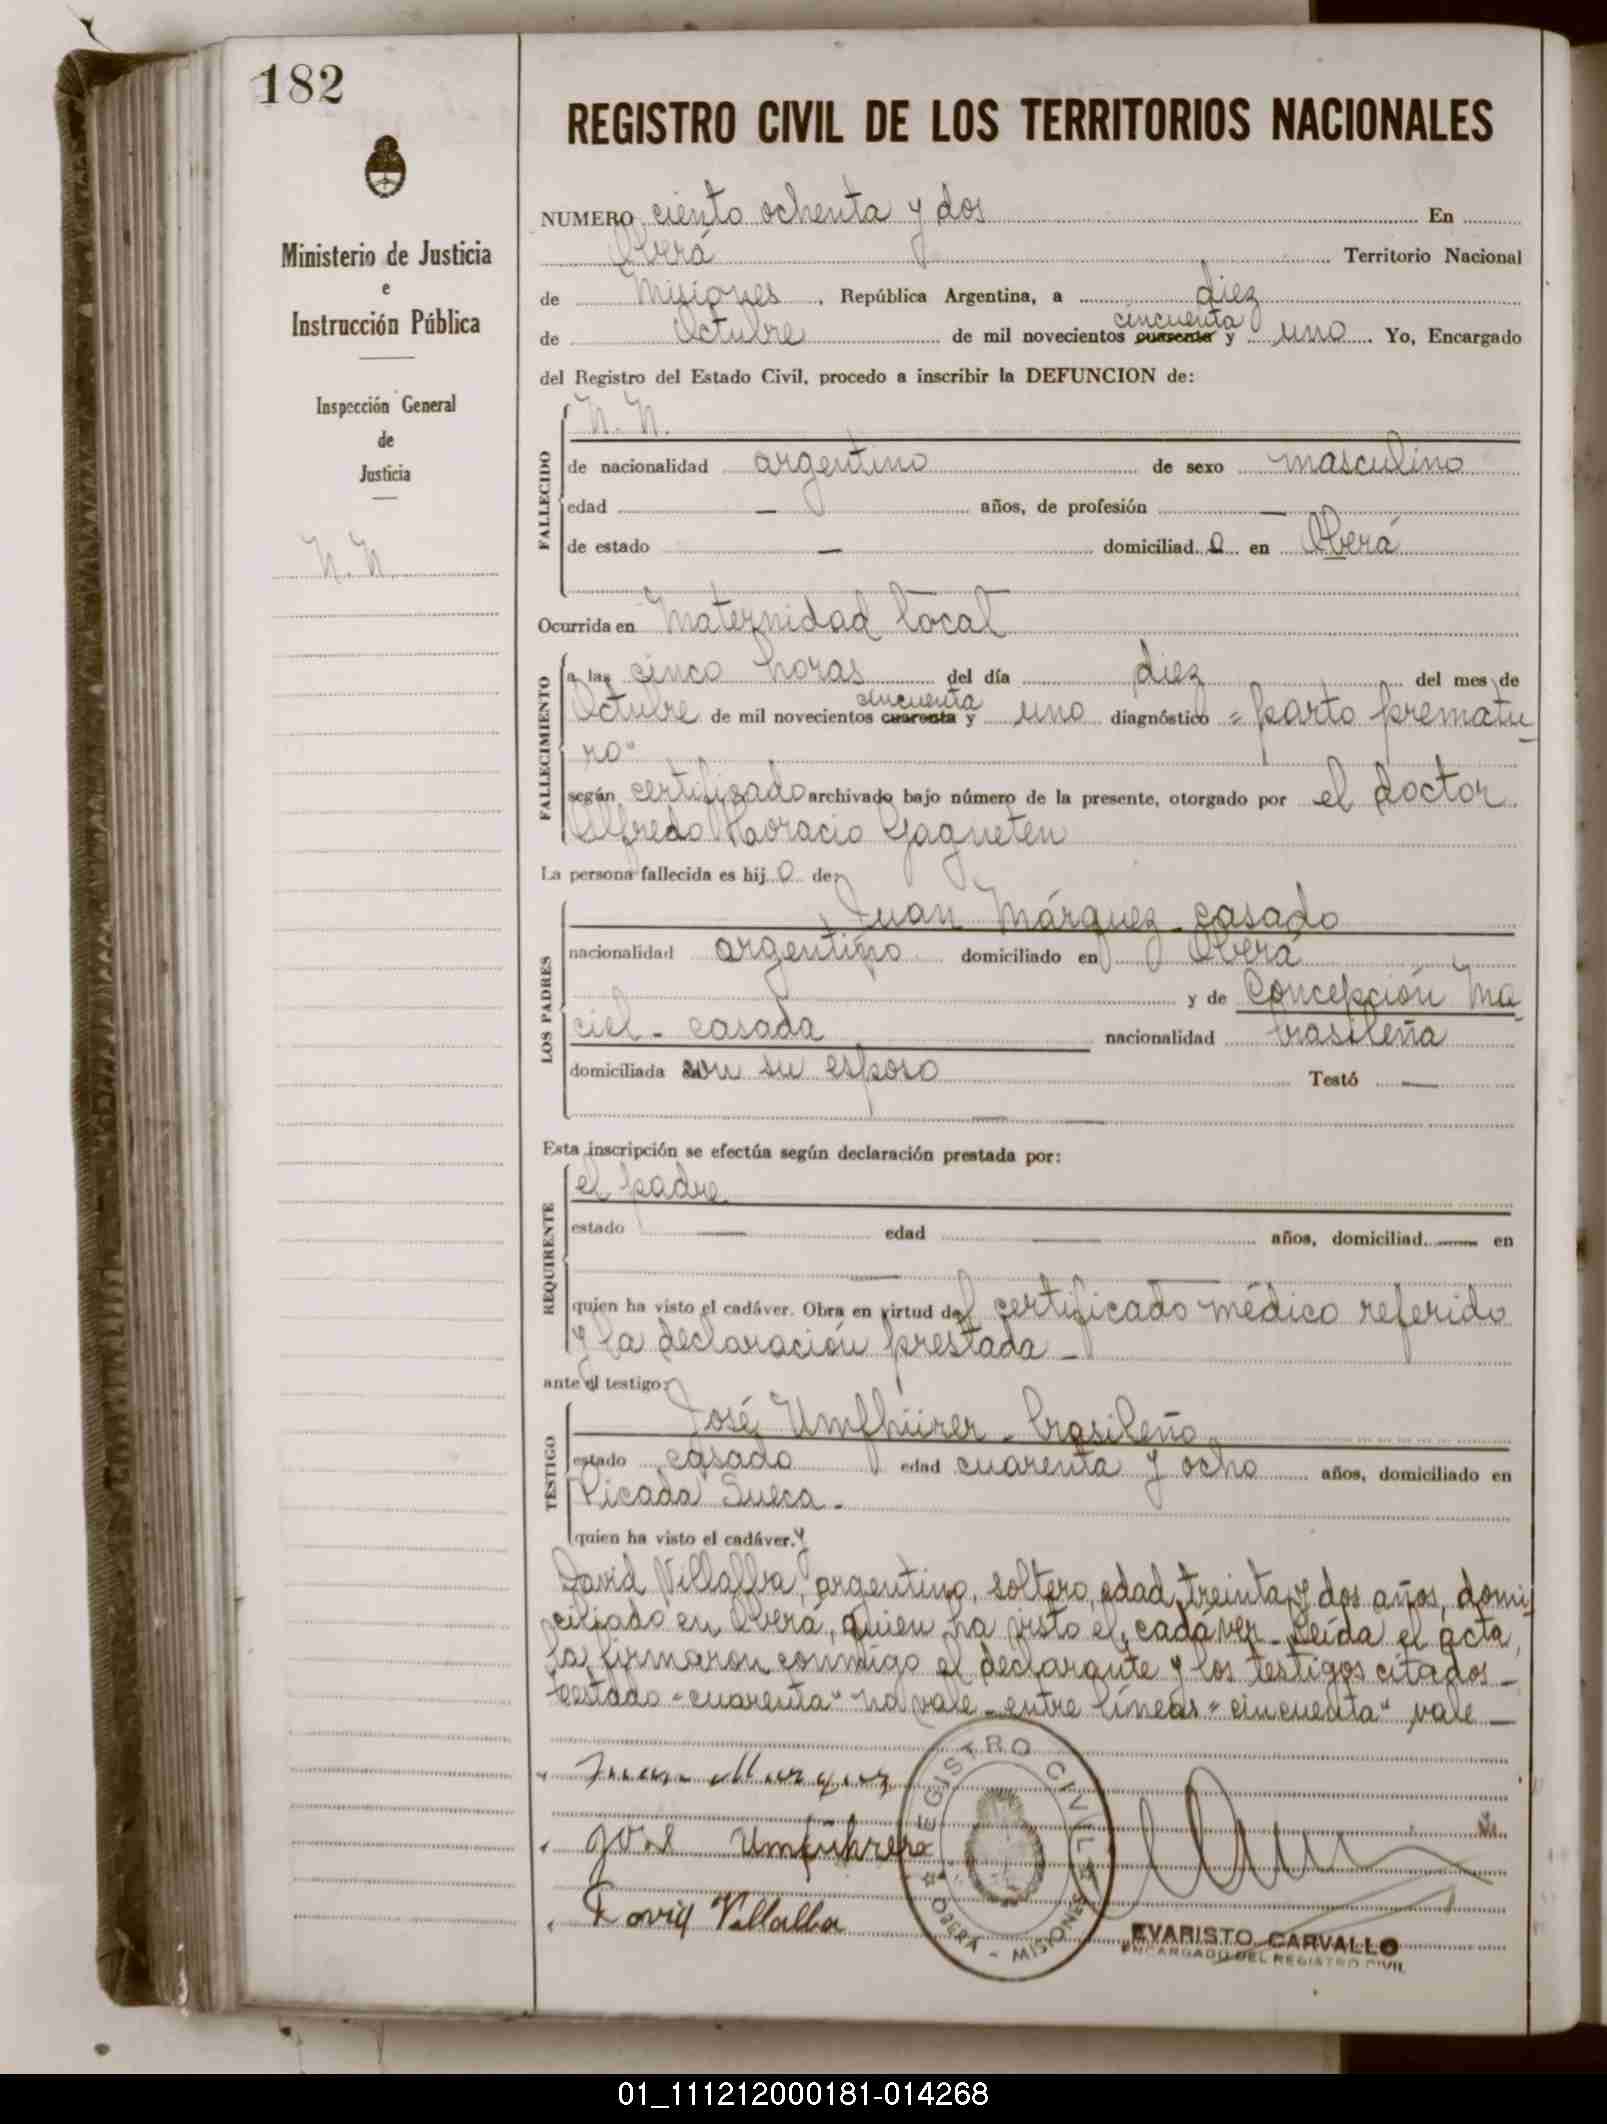 182
REGISTRO CIVIL DE LOS TERRITORIOS NACIONALES
Ministerio de Justicia
e
Instrucción Pública
Inspección General
de
Justicia
N. N.
NUMERO ciento ochenta y dos En
Oberá Territorio Nacional
de Misiones, República Argentina, a diez
cincuenta
de Octubre de mil novecientos cuarenta y uno. Yo, Encargado
del Registro del Estado Civil, procedo a inscribir la DEFUNCION de:
FALLECIDO
N. N.
de nacionalidad argentino de sexo masculino
edad — años, de profesión —
de estado — domiciliad o en Oberá
Ocurrida en Maternidad local
FALLECIMIENTO
a las cinco horas del día diez del mes de
cincuenta
Octubre de mil novecientos cuarenta y uno diagnóstico "parto prematu-
ro"
según certificado archivado bajo número de la presente, otorgado por el doctor
Alfredo Horacio Gagneten
La persona fallecida es hij o de:
LOS PADRES
Juan Márquez - casado
nacionalidad argentino domiciliado en Oberá
y de Concepción Ma-
ciel - casada nacionalidad brasileña
domiciliada con su esposo Testó —
—
Esta inscripción se efectúa según declaración prestada por:
REQUIRENTE
el padre
estado — edad — años, domiciliad — en
—
quien ha visto el cadáver. Obra en virtud del certificado médico referido
y la declaración prestada -
ante el testigo:
TESTIGO
José Umfhürer - brasileño
estado casado edad cuarenta y ocho años, domiciliado en
Picada Sueca -
quien ha visto el cadáver. y
David Villalba, argentino, soltero, edad treinta y dos años, domi-
ciliado en Oberá, quien ha visto el cadáver - Leída el acta,
la firmaron conmigo el declarante y los testigos citados -
testado "cuarenta" no vale - entre líneas "cincuenta" vale —
Juan Marquez
José Umfuhrer
David Villalba
REGISTRO CIVIL
OBERÁ - MISIONES
EVARISTO CARVALLO
ENCARGADO DEL REGISTRO CIVIL
01_111212000181-014268